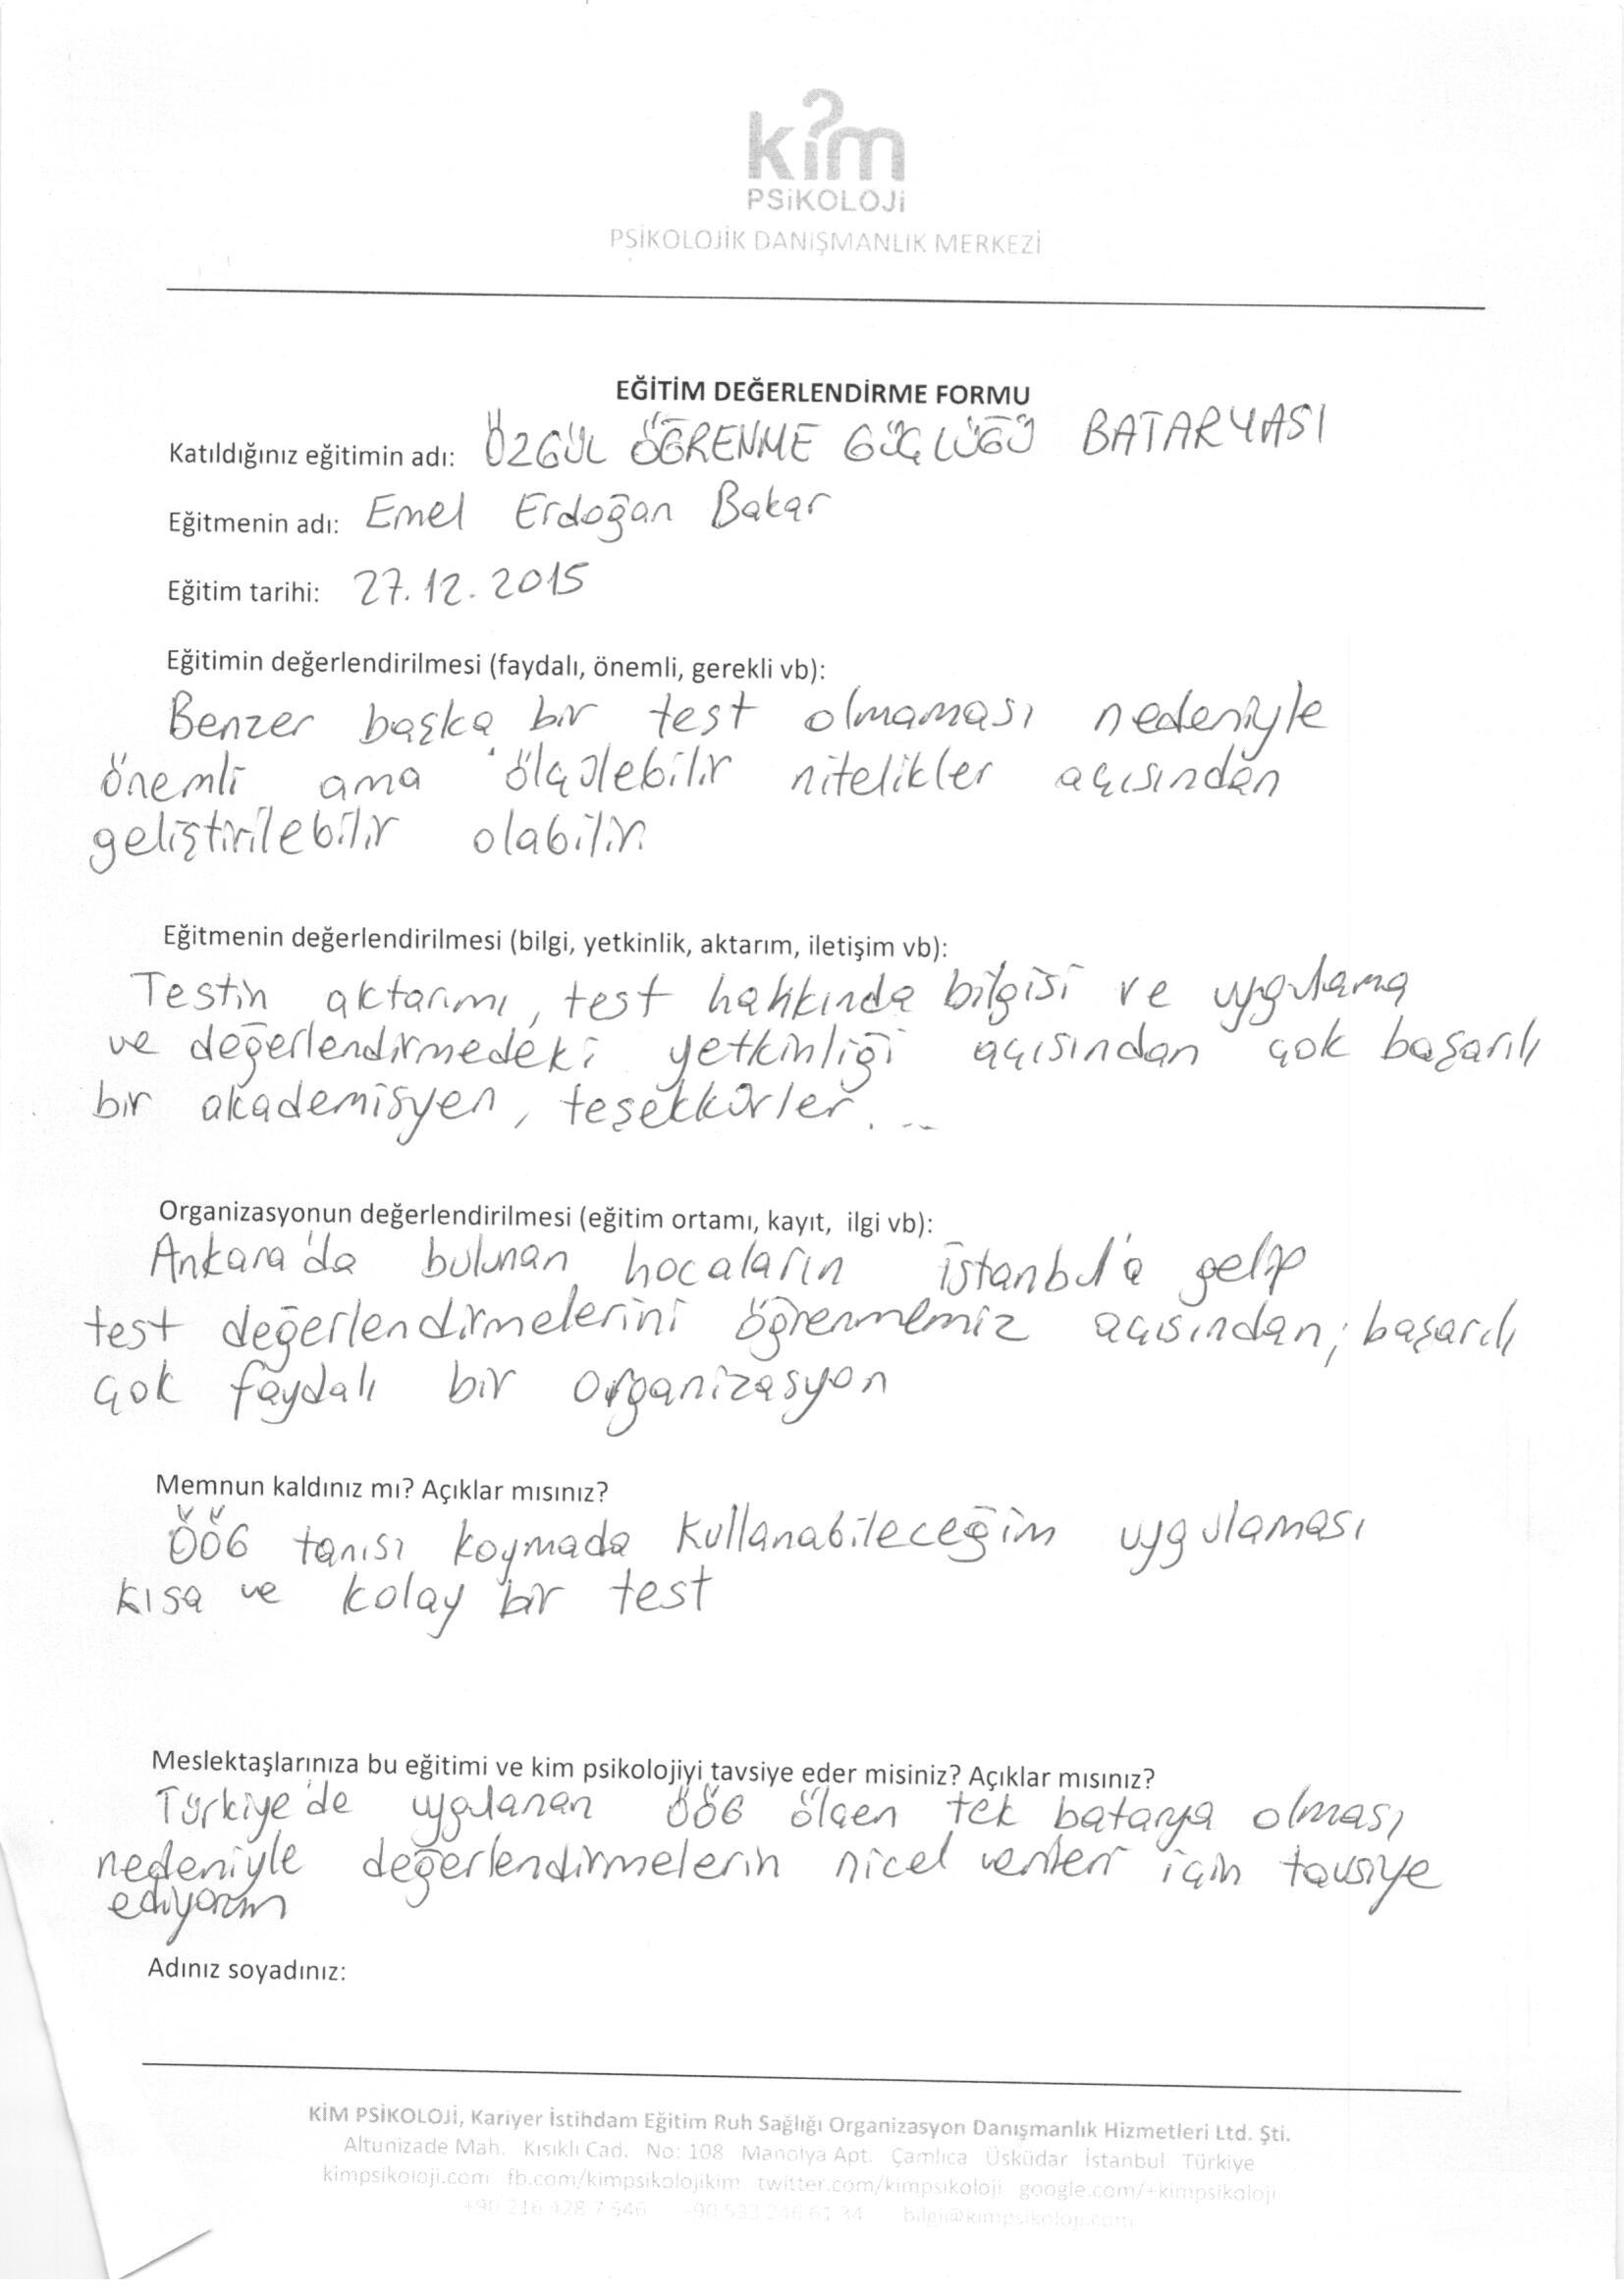 kim
PSiKOLOJi
PSİKOLOJİK DANIŞMANLIK MERKEZİ
EĞİTİM DEĞERLENDİRME FORMU
Katıldığınız eğitimin adı: ÖZGÜL ÖĞRENME GÜÇLÜĞÜ BATARYASI
Eğitmenin adı: Emel Erdoğan Bakar
Eğitim tarihi: 27.12.2015
Eğitimin değerlendirilmesi (faydalı, önemli, gerekli vb):
Benzer başka bir test olmaması nedeniyle
önemli ama ölçülebilir nitelikler açısından
geliştirilebilir olabilir.
Eğitmenin değerlendirilmesi (bilgi, yetkinlik, aktarım, iletişim vb):
Testin aktarımı, test hakkında bilgisi ve uygulama
ve değerlendirmedeki yetkinliği açısından çok başarılı
bir akademisyen, teşekkürler...
Organizasyonun değerlendirilmesi (eğitim ortamı, kayıt, ilgi vb):
Ankara'da bulunan hocaların İstanbul'a gelip
test değerlendirmelerini öğrenmemiz açısından; başarılı
çok faydalı bir organizasyon
Memnun kaldınız mı? Açıklar mısınız?
ÖÖG tanısı koymada kullanabileceğim uygulaması
kısa ve kolay bir test
Meslektaşlarınıza bu eğitimi ve kim psikolojiyi tavsiye eder misiniz? Açıklar mısınız?
Türkiye'de uygulanan ÖÖG ölçen tek batarya olması
nedeniyle değerlendirmelerin nicel verileri için tavsiye
ediyorum
Adınız soyadınız:
KİM PSİKOLOJİ, Kariyer İstihdam Eğitim Ruh Sağlığı Organizasyon Danışmanlık Hizmetleri Ltd. Şti.
Altunizade Mah. Kısıklı Cad. No: 108 Manolya Apt. Çamlıca Üsküdar İstanbul Türkiye
kimpsikoloji.com fb.com/kimpsikolojikim twitter.com/kimpsikoloji google.com/+kimpsikoloji
bilgi@kimpsikoloji.com